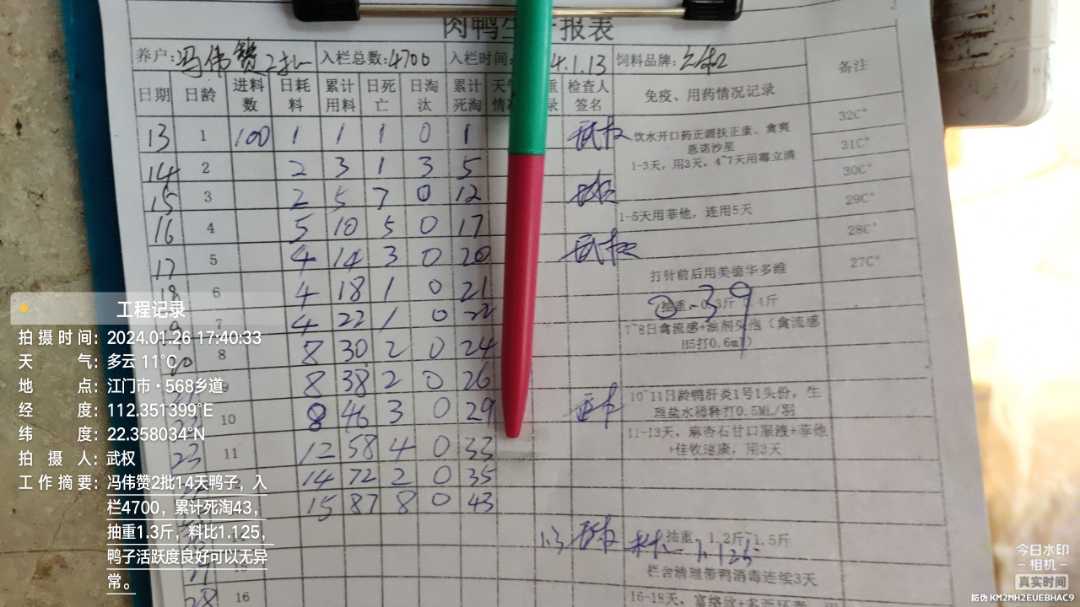 肉鸭生 报表
养户: 冯伟赞2批 入栏总数:4700 入栏时间 4.1.13 饲料品牌:
备注
日期 日龄 进料数 日耗料 累计用料 日死亡 日淘汰 累计死淘 天 情 检查人签名 免疫、用药情况记录
13 1 100 1 1 1 0 1 武权 饮水开口药正调扶正康、禽爽 32C°
恩诺沙星
1-3天,用3天,4~7天用霉立清 31C°
14 2 2 3 1 3 5 30C°
15 3 2 5 7 0 12 武权 1-5天用菲他,连用5天 29C°
16 4 5 10 5 0 17 28C°
17 5 4 14 3 0 20 武权 打针前后用美德华多维 27C°
18 6 4 18 1 0 21 抽重 斤
39
7 4 22 1 0 22 7~8日禽流感+ (禽流感
H5打0.6ml)
8 8 30 2 0 24
9 8 38 2 0 26
10 8 46 3 0 29 10~11日龄鸭肝炎1号1头份,生
理盐水稀释打0.5ML/羽
23 11 12 58 4 0 33 11-13天,麻杏石甘口服液+菲他
,用3天
14 72 2 0 35
15 87 8 0 43
1.3 武权 料 1.125 抽重 1.2斤 1.5斤
栏舍清理带鸭消毒连续3天
28 16 16-18天,
工程记录
拍摄时间:2024.01.26 17:40:33
天气:多云 11°C
地点:江门市·568乡道
经度:112.351399°E
纬度:22.358034°N
拍摄人:武权
工作摘要:冯伟赞2批14天鸭子,入
栏4700,累计死淘43,
抽重1.3斤,料比1.125,
鸭子活跃度良好可以无异
常。
今日水印
-相机-
真实时间
防伪 KM2MH2EUEBHAC9